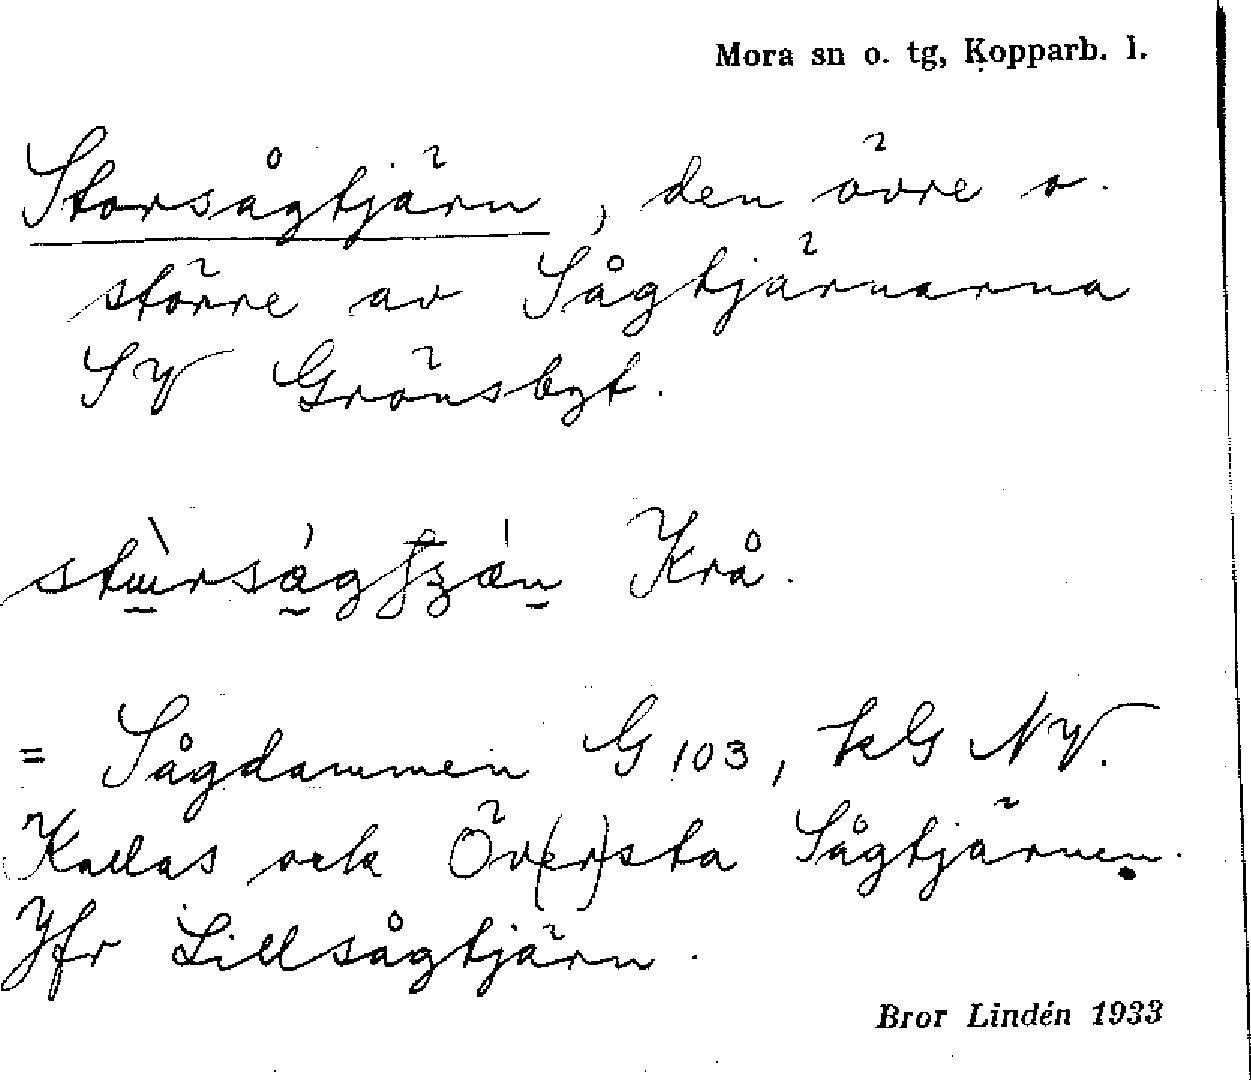 Mora sn o. tg, Kopparb. l.
Storsågtjärn, den övre o.
större av Sågtjärnarna
SV Grönsbgt.
Krå.
= Sågdammen G 103, kG NV.
Kallas ock Öv(er)sta Sågtjärnen.
Jfr Lillsågtjärn.
Bror Lindén 1933